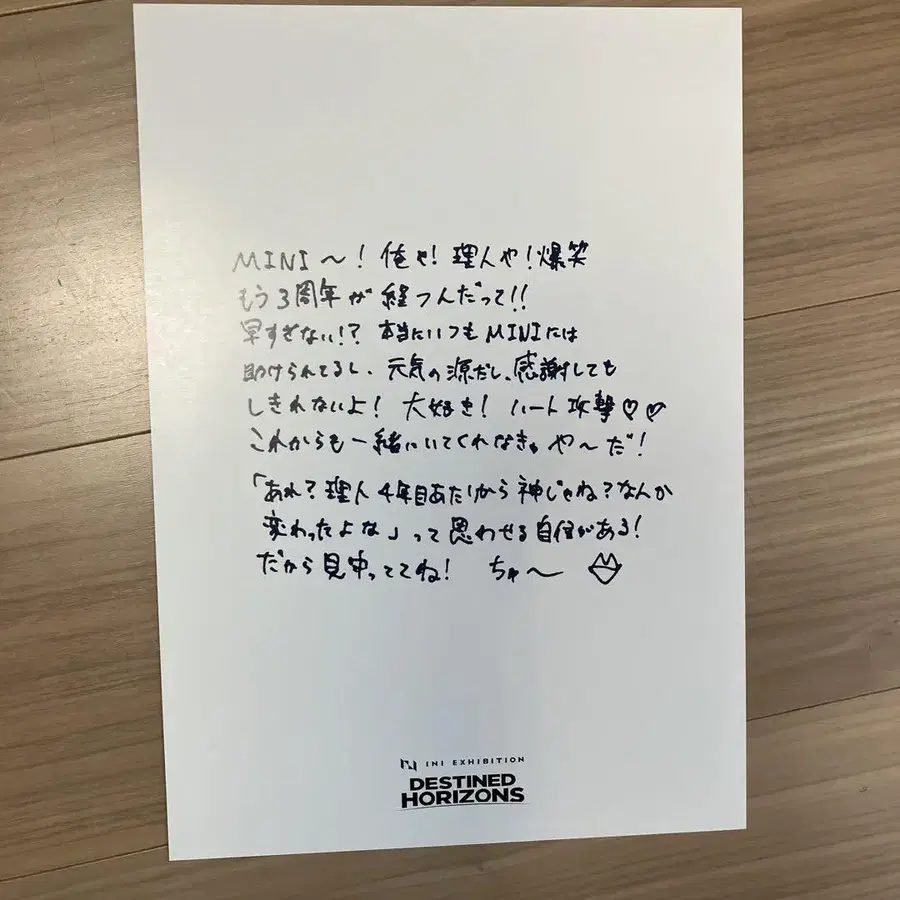 MINI〜！俺や！理人や！爆笑
もう3周年が経つんだって!!
早すぎない!? 本当にいつもMINIには
助けられてるし、元気の源だし、感謝しても
しきれないよ！大好き！ハート攻撃♡♡
これからも一緒にいてくれなき。や〜だ！
「あれ？理人4年目あたりから神じゃね？なんか
変わったよな」って思わせる自信がある！
だから見守っててね！ ちゅ〜
INI EXHIBITION
DESTINED
HORIZONS